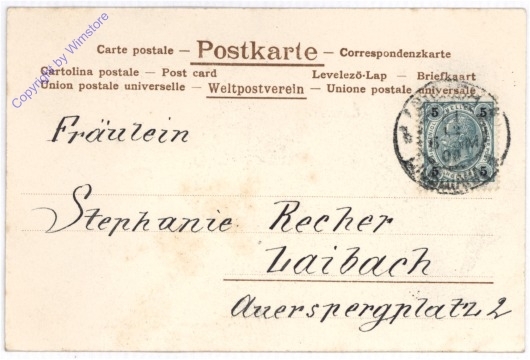 Carte postale — Postkarte — Correspondenzkarte
Cartolina postale — Post card Levelező-Lap — Briefkaart
Union postale universelle — Weltpostverein — Unione postale universale
Copyright by Wimstore
Fräulein
Stephanie Recher
Laibach
Auerspergplatz 2
5 5
5 5